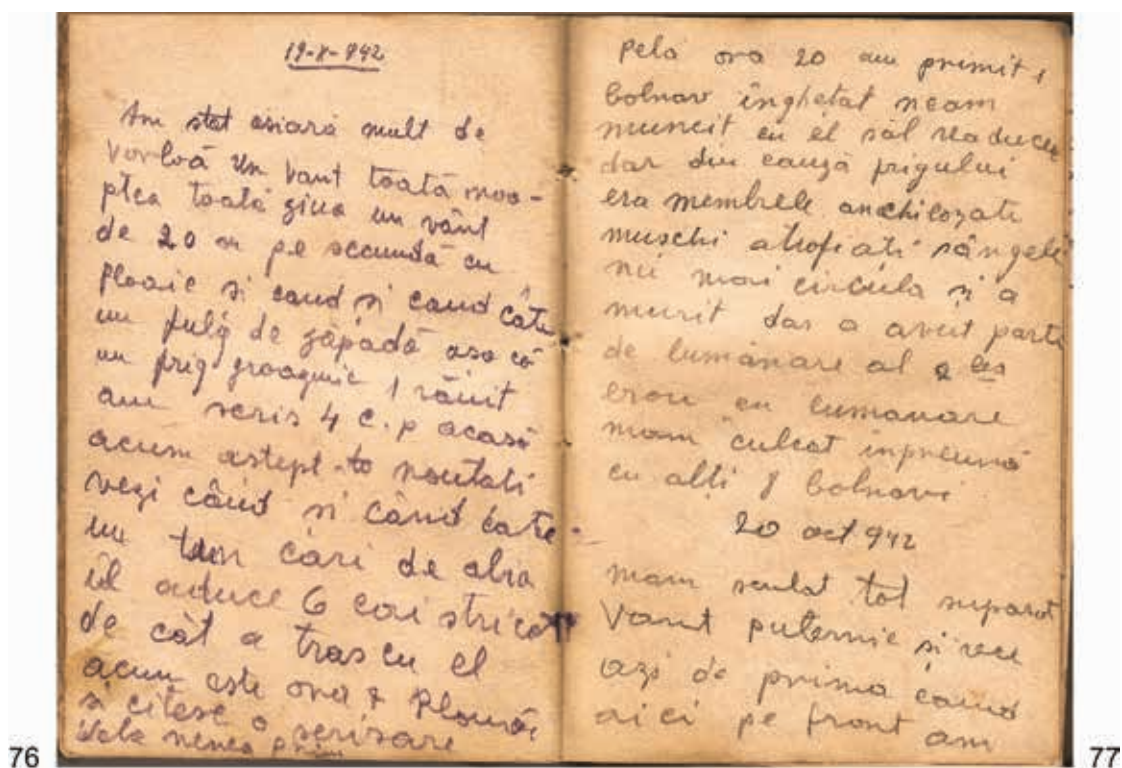 19-X-942
Am stat asiară mult de
vorbă Un vant toată noo-
ptea toată ziua un vânt
de 20 m pe secundă cu
ploaie si cand si cand câte
un fulg de zăpadă asa că
un frig groaznic 1 rănit
am scris 4 c.p acasă
acum astept-to noutati
vezi când si când cate-
un tun cari de abia
îl aduce 6 cai stricat
de cât a tras cu el
acum este ora Plouă
si citesc o scrisare
nenea
76
Pela ora 20 am primit 1
bolnav înghetat neam
muncit cu el săl readucem
dar din cauză frigului
era membrele anchilozate
muschi atrofiati sângele
nu mai circula și a
murit dar a avut parte
de lumânare al 2 lea
erou cu lumanare
mam culcat inpreună
cu alți 8 bolnavi
20 oct 942
mam sculat tot suparat
Vant puternic și rece
azi de prima cand
aici pe front am
77